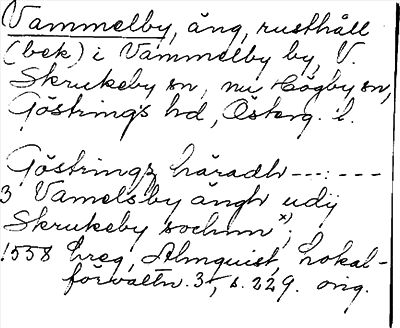 Vammelby, äng, rusthåll
(bek) i Vammelby by, V.
Skrukeby sn, nu Högby sn,
Göstrings hd, Österg. l.
Göstringz häradh ---:---
3 Vamelsby ängh udij
Skrukeby sochnn x);
1558 hreg, Almquist, Lokal-
förvaltn. 3, s. 229. orig.